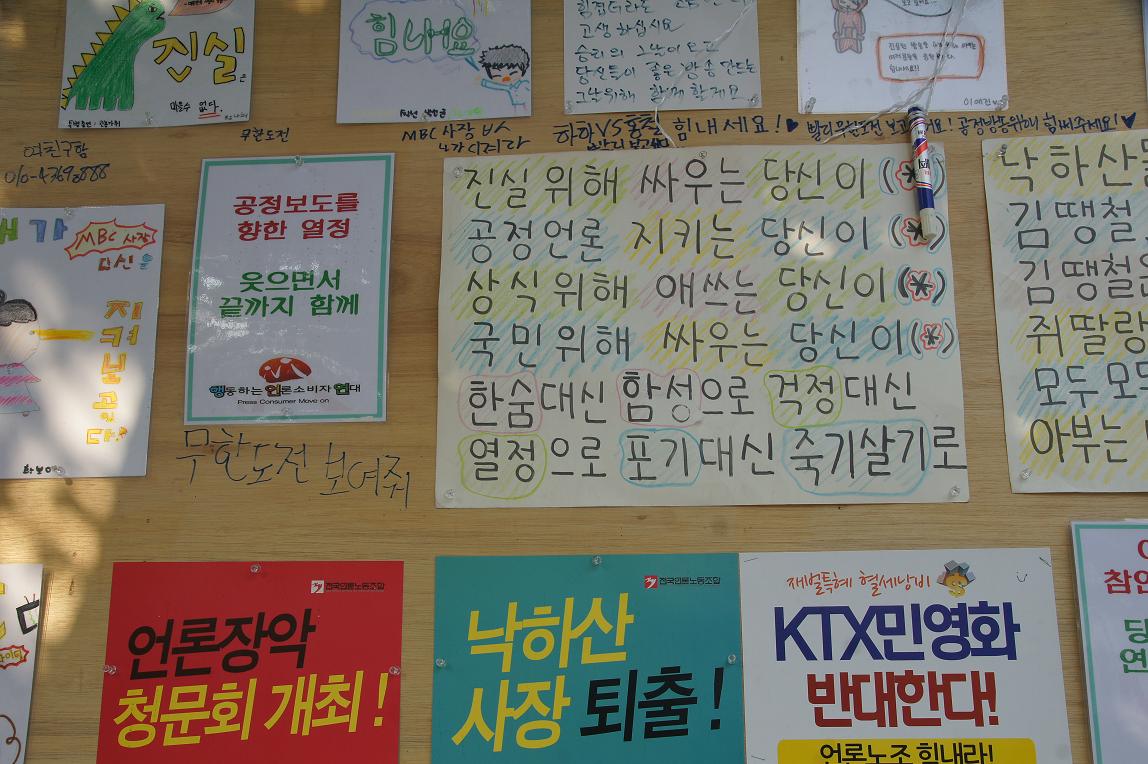 진실은
마음수 없다.
힘내세요
고생하십시요
승리의 그날이 오고
당신들이 좋은 방송 만드는
그날위해 함께 할게요
이예진
여친구함
무한도전
MBC 사장 바
나가시려라
하하VS홍철
힘내세요!♥
빨리 무한도전 보고
공정방송위해 힘써주세요!♥
MBC 사장
당신을
지켜보고있다.
공정보도를
향한 열정
웃으면서
끝까지 함께
행동하는 언론소비자연대
Press Consumer Move on
무한도전 보여줘
진실 위해 싸우는 당신이 (*)
공정언론 지키는 당신이 (*)
상식 위해 애쓰는 당신이 (*)
국민 위해 싸우는 당신이 (*)
한숨대신 함성으로 걱정대신
열정으로 포기대신 죽기살기로
낙하산
김땡철
김땡철
쥐딸랑
모두 모두
아부는
전국언론노동조합
언론장악
청문회 개최!
전국언론노동조합
낙하산
사장 퇴출!
재벌특혜 혈세낭비
KTX민영화
반대한다!
언론노조 힘내라!
참언